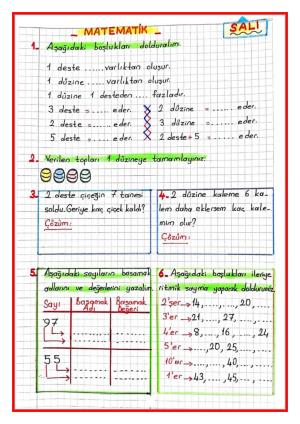 MATEMATİK
SALI
1. Aşağıdaki boşlukları dolduralım.
1 deste ......varlıktan oluşur.
1 düzine ......varlıktan oluşur.
1 düzine 1 desteden .... fazladır.
3 deste = ...... eder. 2 düzine = ...... eder.
2 deste = ...... eder. 3 düzine = ...... eder.
5 deste = ...... eder. 2 deste+5 = ...... eder.
2. Verilen topları 1 düzineye tamamlayınız.
3. 2 deste çiçeğin 7 tanesi
soldu. Geriye kaç çiçek kaldı?
Çözüm:
4. 2 düzine kaleme 6 ka-
lem daha eklersem kaç kale-
mim olur?
Çözüm:
5. Aşağıdaki sayıların basamak
adlarını ve değerlerini yazalım.
Sayı Basamak Adı Basamak Değeri
97
55
6. Aşağıdaki boşlukları ileriye
ritmik sayma yaparak doldurunuz.
2'şer→14,....,....,20,....
3'er→21,....,27,....,....
4'er→8,....,16,....,24
5'er→....,20,25,....,....
10'er→....,....,40,....,....
1'er→43,....,45,....,....